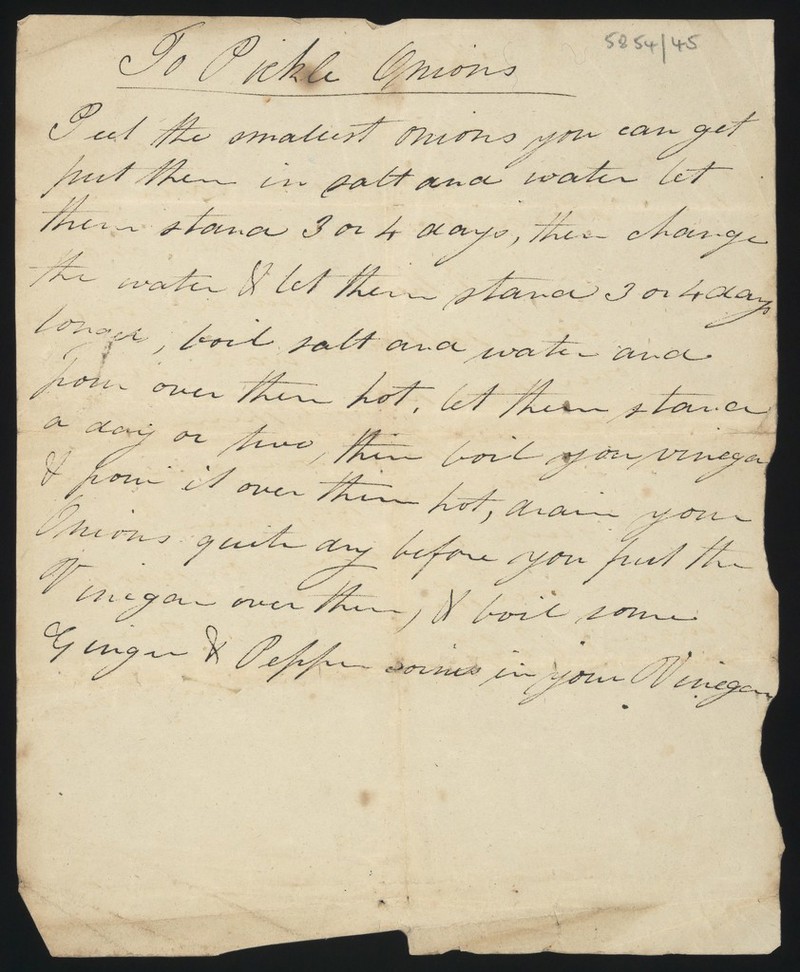 5854/45
To Pickle Onions
Peel the smallest onions you can get
put them in salt and water let
them stand 3 or 4 days, then change
the water & let them stand 3 or 4 days
longer, boil salt and water and
pour over them hot, let them stand
a day or two, then boil you vinegar
& pour it over them hot, drain your
Onions quite dry before you put the
Vinegar over them, & boil some
Ginger & Pepper corns in your Vinegar